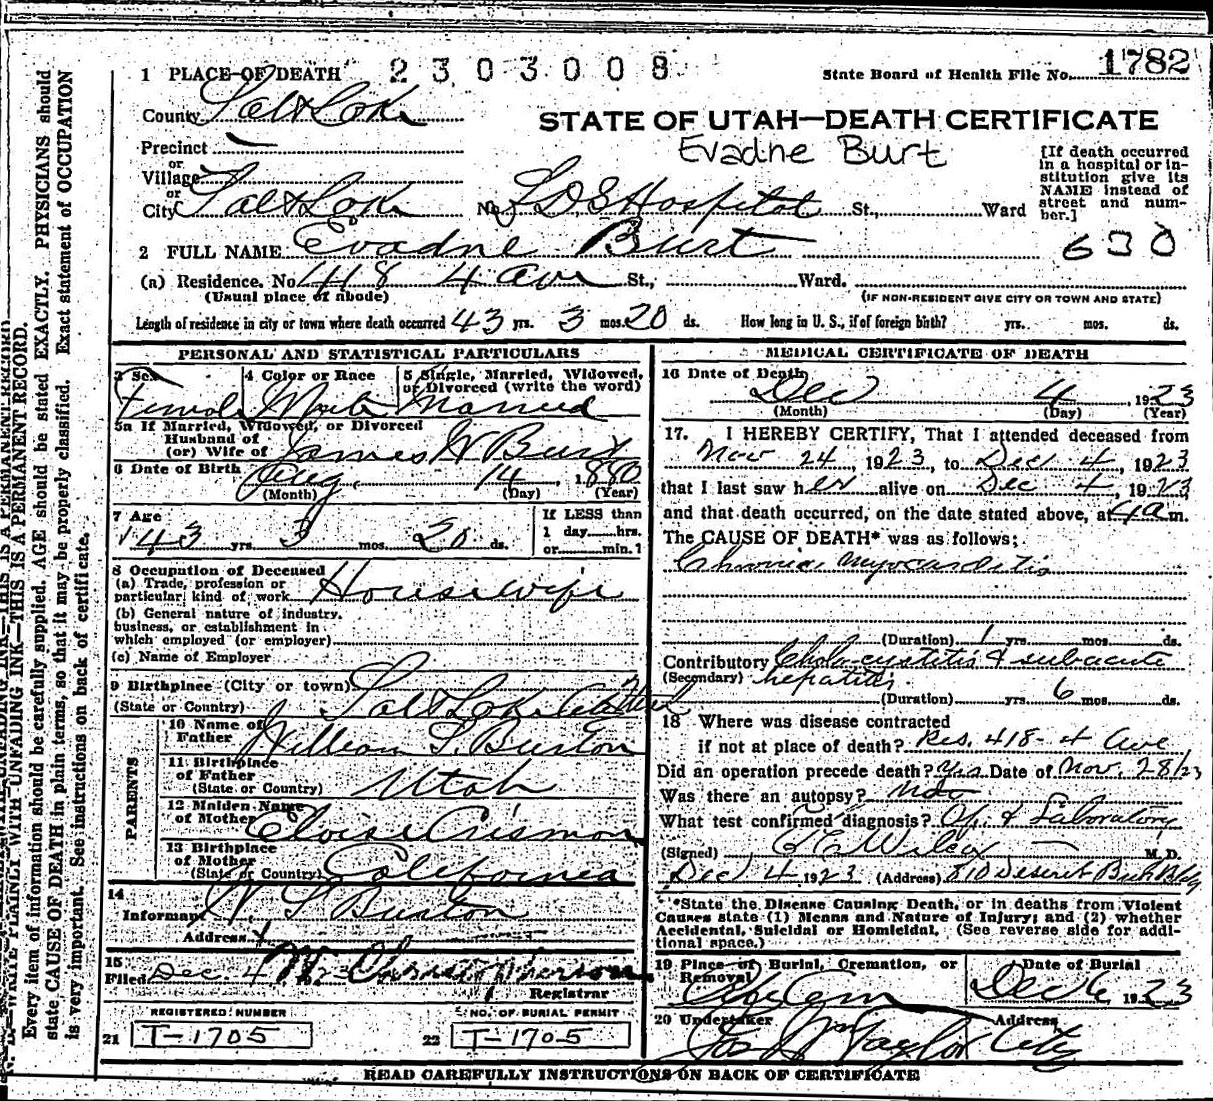 1 PLACE OF DEATH 2303008 State Board of Health File No. 1782
County Salt Lake
STATE OF UTAH—DEATH CERTIFICATE
Precinct
Evadne Burt
or
Village
or
City Salt Lake No. L D S Hospital St., Ward
[If death occurred
in a hospital or in-
stitution give its
NAME instead of
street and num-
ber.]
2 FULL NAME Evadne Burt
630
(a) Residence. No. 418 4 Ave St., Ward.
(Usual place of abode) (IF NON-RESIDENT GIVE CITY OR TOWN AND STATE)
Length of residence in city or town where death occurred 43 yrs. 3 mos. 20 ds. How long in U. S., if of foreign birth? yrs. mos. ds.
PERSONAL AND STATISTICAL PARTICULARS
3 Sex 4 Color or Race 5 Single, Married, Widowed,
or Divorced (write the word)
Female White Married
5a If Married, Widowed, or Divorced
Husband of
(or) Wife of James W Burt
6 Date of Birth Aug 14, 1880
(Month) (Day) (Year)
7 Age If LESS than
1 day hrs.
43 yrs. 3 mos. 20 ds. or min.?
8 Occupation of Deceased
(a) Trade, profession or
particular kind of work Housewife
(b) General nature of industry,
business, or establishment in
which employed (or employer)
(c) Name of Employer
9 Birthplace (City or town)
(State or Country) Salt Lake City Utah
PARENTS
10 Name of
Father William S. Burton
11 Birthplace
of Father
(State or Country) Utah
12 Maiden Name
of Mother Eloise Crismon
13 Birthplace
of Mother
(State or Country) California
14
Informant W S Burton
Address
15
Filed Dec. 4 1923
Registrar
REGISTERED NUMBER NO. OF BURIAL PERMIT
21 T-1705 22 T-1705
MEDICAL CERTIFICATE OF DEATH
16 Date of Death
Dec 4, 1923
(Month) (Day) (Year)
17. I HEREBY CERTIFY, That I attended deceased from
Nov 24, 1923, to Dec 4, 1923
that I last saw her alive on Dec 4, 1923,
and that death occurred, on the date stated above, at 4 a m.
The CAUSE OF DEATH* was as follows:
Chronic myocarditis
(Duration) 1 yrs. mos. ds.
Contributory Cholecystitis & subacute
(Secondary) hepatitis
(Duration) yrs. 6 mos. ds.
18 Where was disease contracted
if not at place of death? Res. 418-4 Ave
Did an operation precede death? Yes Date of Nov. 28/23
Was there an autopsy? No
What test confirmed diagnosis? Op. & Laboratory
(Signed) C E Wilcox M. D.
Dec 4 1923 (Address) 810 Deseret Bank Bldg
*State the Disease Causing Death, or in deaths from Violent
Causes state (1) Means and Nature of Injury; and (2) whether
Accidental, Suicidal or Homicidal. (See reverse side for addi-
tional space.)
19 Place of Burial, Cremation, or Date of Burial
Removal
City Cem Dec 6 1923
20 Undertaker Address
Jos Wm Taylor City
READ CAREFULLY INSTRUCTIONS ON BACK OF CERTIFICATE
N. B.—WRITE PLAINLY WITH UNFADING INK—THIS IS A PERMANENT RECORD.
Every item of information should be carefully supplied. AGE should be stated EXACTLY. PHYSICIANS should
state CAUSE OF DEATH in plain terms, so that it may be properly classified. Exact statement of OCCUPATION
is very important. See instructions on back of certificate.